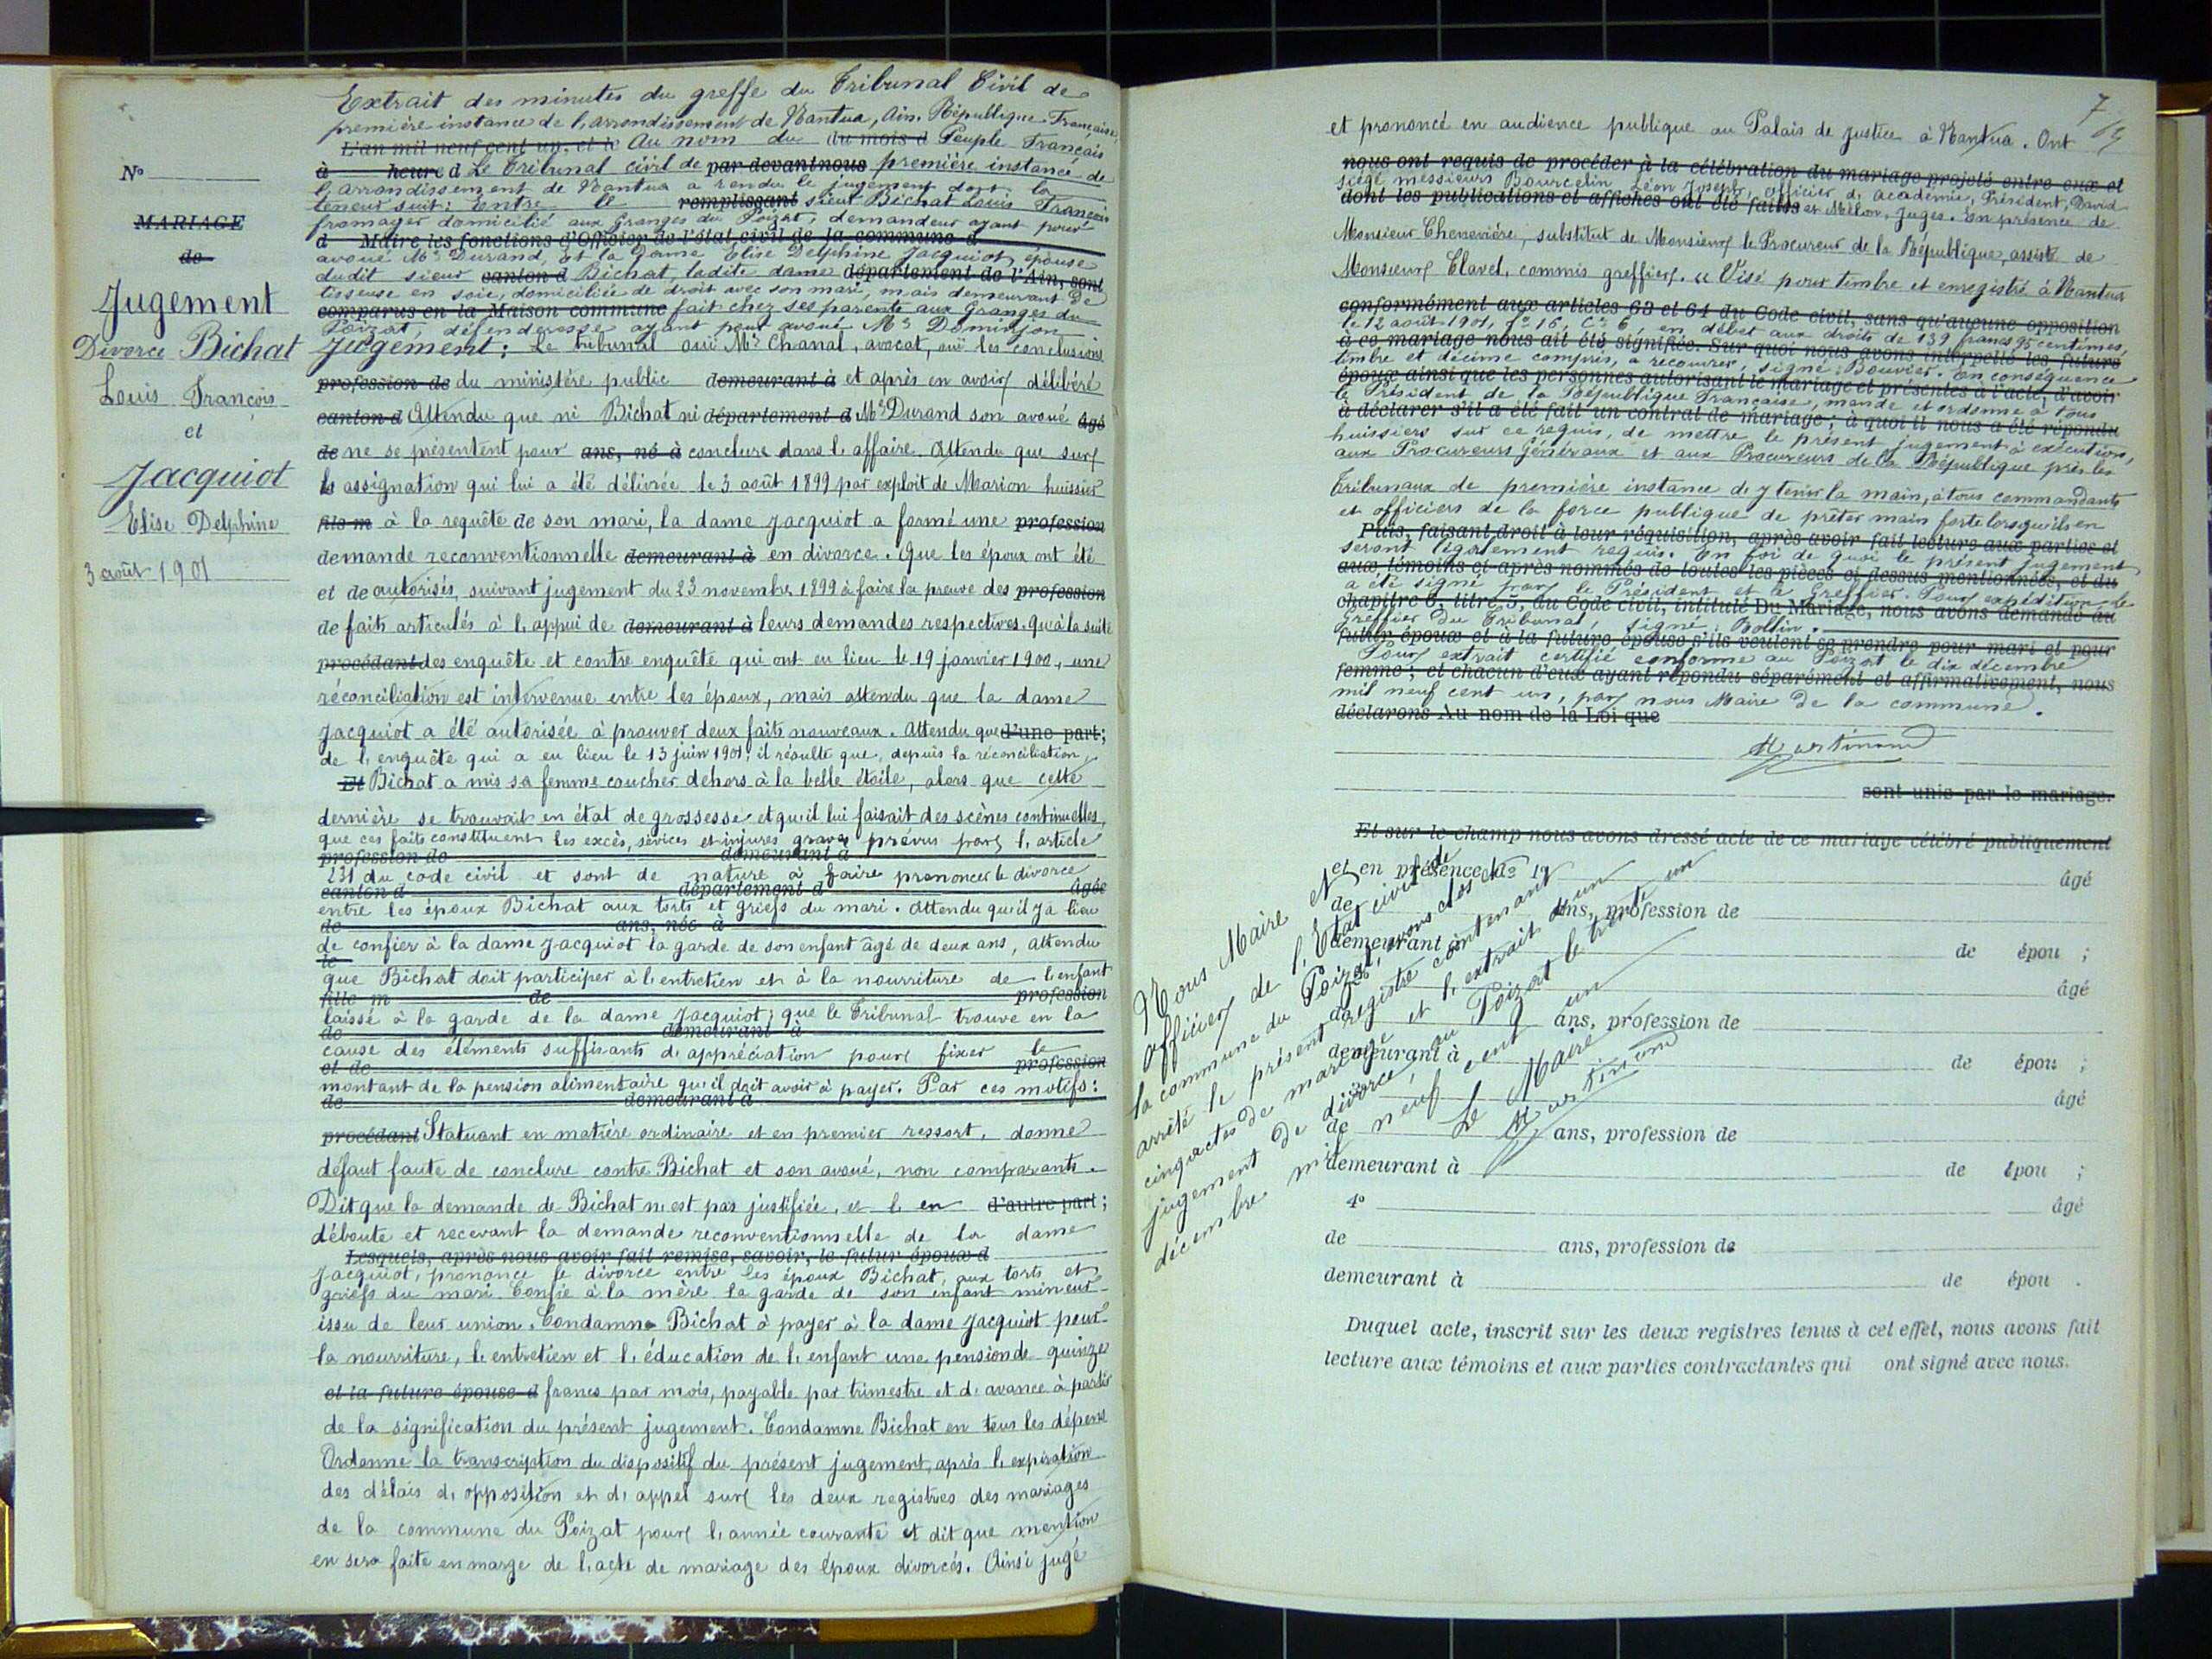 Extrait des minutes du greffe du Tribunal Civil de
première instance de l'arrondissement de Nantua, Ain. République Française
L'an mil neuf cent un, et le Au nom du du mois d Peuple Français
à heure d Le Tribunal civil de par devant nous première instance de
l'arrondissement de Nantua a rendu le jugement dont la
teneur suit: Entre le remplissant sieur Bichat Louis François
fromager domicilié aux Granges du Poizat, demandeur ayant pour
d Maire les fonctions d'Officier de l'état civil de la commune d
avoué Me Durand, et la dame Elise Delphine Jacquiot, épouse
dudit sieur canton d Bichat, ladite dame département de l'Ain, sont
tisseuse en soie, domiciliée de droit avec son mari, mais demeurant de
comparus en la Maison commune fait chez ses parents aux Granges du
Poizat, défenderesse ayant pour avoué Me Dominjon
Jugement: Le tribunal ouï Me Chanal, avocat, ouï les conclusions
profession de du ministère public demeurant à et après en avoir délibéré
canton d Attendu que ni Bichat ni département d Me Durand son avoué âgé
de ne se présentent pour ans, né à conclure dans l'affaire. Attendu que sur
le assignation qui lui a été délivrée le 3 août 1899 par exploit de Marion huissier
fils m à la requête de son mari, la dame Jacquiot a formé une profession
demande reconventionnelle demeurant à en divorce. Que les époux ont été
et de autorisés, suivant jugement du 23 novembre 1899 à faire la preuve des profession
de faits articulés à l'appui de demeurant à leurs demandes respectives. qu'à la suite
procédant des enquête et contre enquête qui ont eu lieu le 19 janvier 1900, une
réconciliation est intervenue entre les époux, mais attendu que la dame
Jacquiot a été autorisée à prouver deux faits nouveaux. Attendu que d'une part;
de l'enquête qui a eu lieu le 13 juin 1901, il résulte que, depuis la réconciliation,
Et Bichat a mis sa femme coucher dehors à la belle étoile, alors que cette
dernière se trouvait en état de grossesse et qu'il lui faisait des scènes continuelles,
que ces faits constituent les excès, sévices et injures graves prévus par l'article
profession de demeurant à
231 du code civil et sont de nature à faire prononcer le divorce
canton d département d âgée
entre les époux Bichat aux torts et griefs du mari. Attendu qu'il y a lieu
de ans, née à
de confier à la dame Jacquiot la garde de son enfant âgé de deux ans, attendu
le
que Bichat doit participer à l'entretien et à la nourriture de l'enfant
fille m de profession
laissé à la garde de la dame Jacquiot; que le Tribunal trouve en la
de demeurant à
cause des éléments suffisants d'appréciation pour fixer le
et de profession
montant de la pension alimentaire qu'il doit avoir à payer. Par ces motifs:
de demeurant à
procédant Statuant en matière ordinaire et en premier ressort, donne
défaut faute de conclure contre Bichat et son avoué, non comparants.
Dit que la demande de Bichat n'est pas justifiée, et l'en d'autre part;
déboute et recevant la demande reconventionnelle de la dame
Lesquels, après nous avoir fait remise, savoir, le futur époux d
Jacquiot, prononce le divorce entre les époux Bichat, aux torts et
griefs du mari. Confie à la mère la garde de son enfant mineur
issu de leur union. Condamne Bichat à payer à la dame Jacquiot pour
la nourriture, l'entretien et l'éducation de l'enfant une pension de quinze
et la future épouse d francs par mois, payable par trimestre et d'avance à partir
de la signification du présent jugement. Condamne Bichat en tous les dépens
Ordonne la transcription du dispositif du présent jugement, après l'expiration
des délais d'opposition et d'appel sur les deux registres des mariages
de la commune du Poizat pour l'année courante et dit que mention
en sera faite en marge de l'acte de mariage des époux divorcés. Ainsi jugé
No
MARIAGE
de
Jugement
Divorce Bichat
Louis François
et
Jacquiot
Elise Delphine
3 août 1901
7
et prononcé en audience publique au Palais de justice à Nantua. Ont
nous ont requis de procéder à la célébration du mariage projeté entre eux et
siégé messieurs Bourcelin Léon Joseph, officier d'Académie, Président, David
dont les publications et affiches ont été faites et Millon, Juges. En présence de
Monsieur Chenevière, substitut de Monsieur le Procureur de la République, assisté de
Monsieur Clavel, commis greffier. « Visé pour timbre et enregistré à Nantua
conformément aux articles 63 et 64 du Code civil, sans qu'aucune opposition
le 12 août 1901, fo 16, Ce 6, en débet aux droits de 139 francs 95 centimes,
à ce mariage nous ait été signifiée. Sur quoi nous avons interpellé les futurs
timbre et décime compris, à recouvrer, signé: Bouvier. En conséquence
époux ainsi que les personnes autorisant le mariage et présentes à l'acte, d'avoir
le Président de la République Française, mande et ordonne à tous
à déclarer s'il a été fait un contrat de mariage; à quoi il nous a été répondu
huissiers sur ce requis, de mettre le présent jugement à exécution,
aux Procureurs Généraux et aux Procureurs de la République près les
Tribunaux de première instance d'y tenir la main, à tous commandants
et officiers de la force publique de prêter main forte lorsqu'ils en
Puis, faisant droit à leur réquisition, après avoir fait lecture aux parties et
seront légalement requis. En foi de quoi le présent jugement
aux témoins ci-après nommés de toutes les pièces ci dessus mentionnées, et du
a été signé par le Président et le Greffier. Pour expédition, le
chapitre 6, titre 5, du Code civil, intitulé Du Mariage, nous avons demandé au
Greffier du Tribunal, signé,
futur époux et à la future épouse s'ils veulent se prendre pour mari et pour
Pour extrait certifié conforme au Poizat le dix décembre
femme; et chacun d'eux ayant répondu séparément et affirmativement, nous
mil neuf cent un, par nous Maire de la commune.
déclarons Au nom de la Loi que
Martinand
sont unis par le mariage.
Et sur le champ nous avons dressé acte de ce mariage célébré publiquement
et en présence de 1o âgé
de ans, profession de
demeurant à de épou ;
âgé
de ans, profession de
demeurant à de épou ;
âgé
de ans, profession de
demeurant à de épou ;
4o âgé
de ans, profession de
demeurant à de épou .
Nous Maire et
officier de l'Etat civil de
la commune du Poizat, avons clos et
arrêté le présent registre contenant
cinq actes de mariage et l'extrait d'un
jugement de divorce, au Poizat le trente un
décembre mil neuf cent un
Le Maire
Martinand
Duquel acte, inscrit sur les deux registres tenus à cet effet, nous avons fait
lecture aux témoins et aux parties contractantes qui ont signé avec nous.